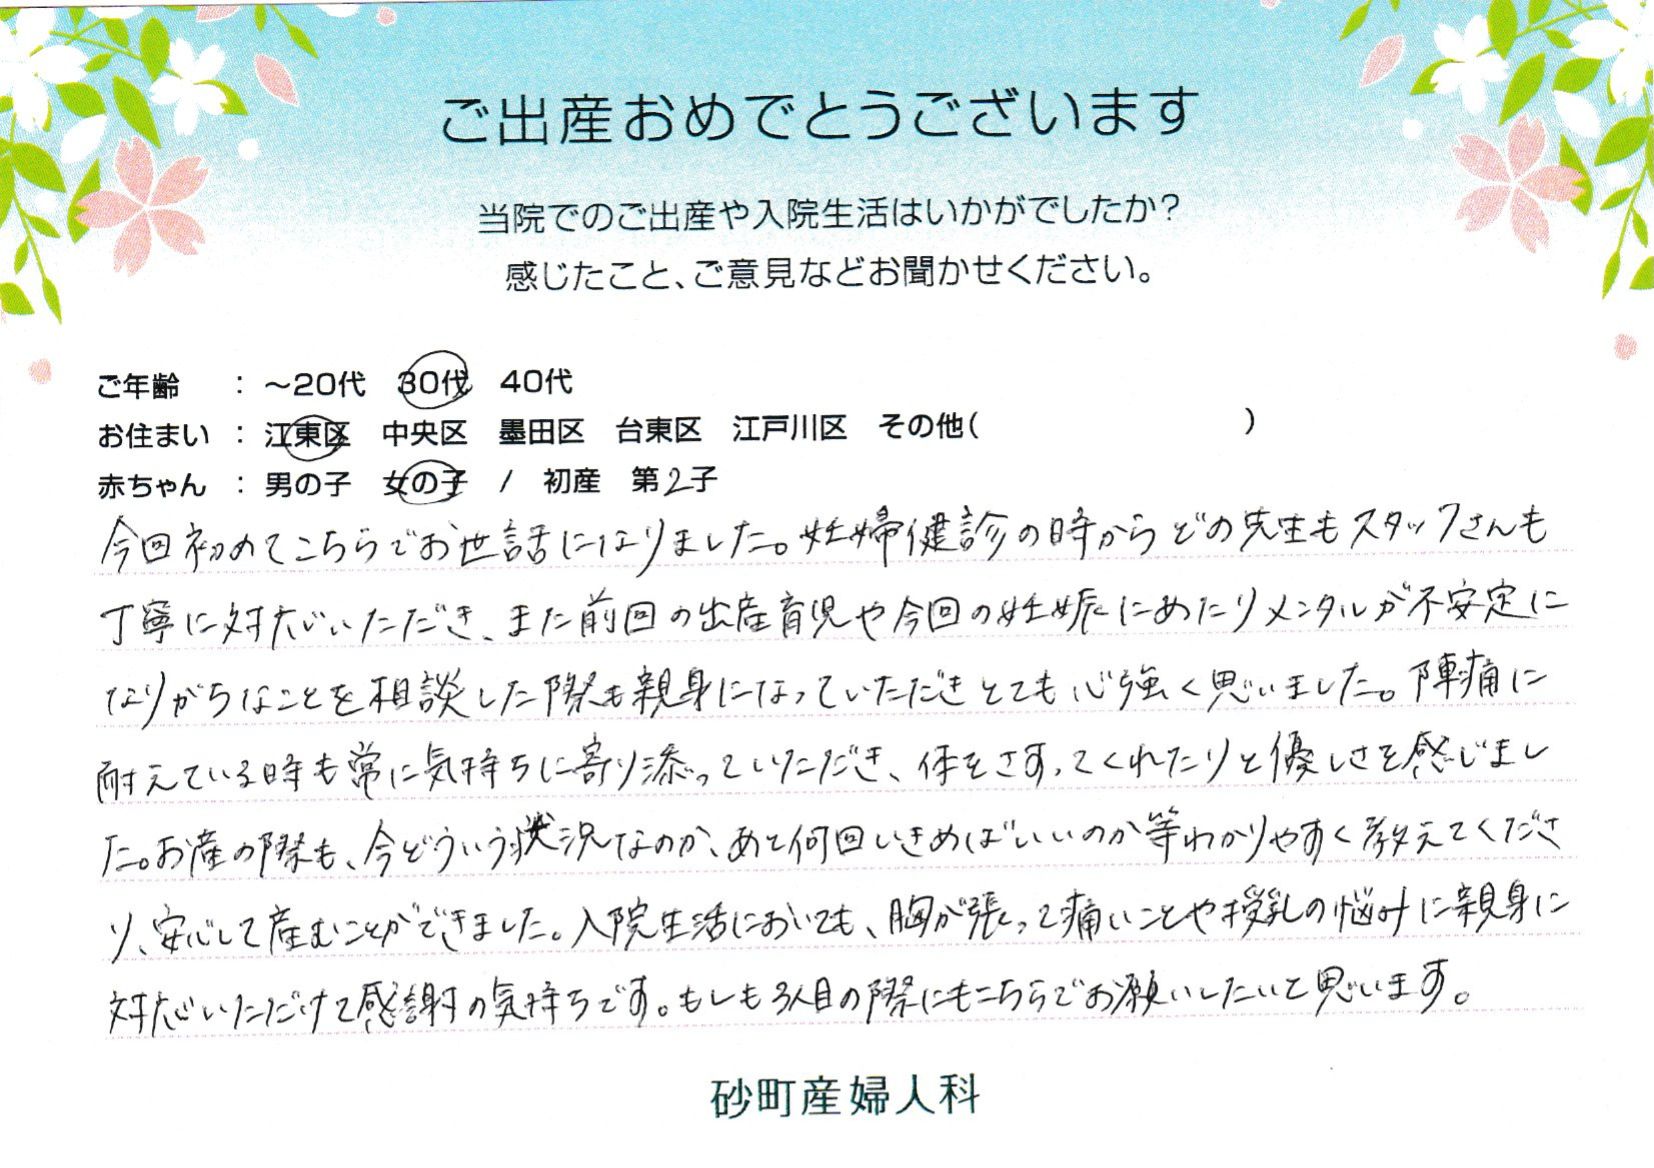 ご出産おめでとうございます
当院でのご出産や入院生活はいかがでしたか?
感じたこと、ご意見などお聞かせください。
ご年齢 : ～20代 30代 40代
お住まい : 江東区 中央区 墨田区 台東区 江戸川区 その他( )
赤ちゃん : 男の子 女の子 / 初産 第2子
今回初めてこちらでお世話になりました。妊婦健診の時からどの先生もスタッフさんも
丁寧に対応いただき、また前回の出産育児や今回の妊娠にあたりメンタルが不安定に
なりがちなことを相談した際も親身になっていただきとても心強く思いました。陣痛に
耐えている時も常に気持ちに寄り添っていただき、体をさすってくれたりと優しさを感じまし
た。お産の際も、今どういう状況なのか、あと何回いきめばいいのか等わかりやすく教えてくださ
り、安心して産むことができました。入院生活においても、胸が張って痛いことや授乳の悩みに親身に
対応いただけて感謝の気持ちです。もしも3人目の際にもこちらでお願いしたいと思います。
砂町産婦人科